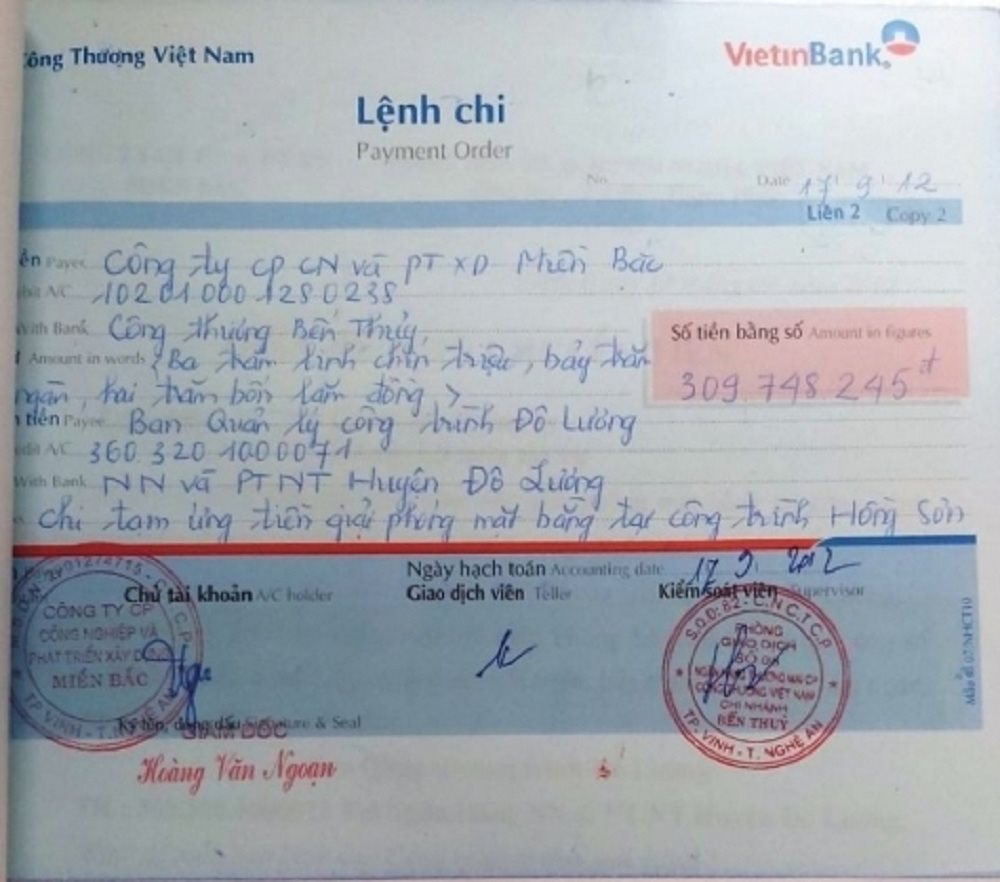 Công Thương Việt Nam
VietinBank
Lệnh chi
Payment Order
No. Date 17 9 12
Liên 2 Copy 2
Công ty CP CN và PT XD Miền Bắc
A/C 10201000 1280238
With Bank Công thương Bến Thủy
Số tiền bằng số Amount in figures
Amount in words Ba trăm linh chín triệu, bảy trăm
309 748 245 đ
ngàn, hai trăm bốn lăm đồng
tiền Payee Ban Quản lý công trình Đô Lương
A/C 360 320 1000071
With Bank NN và PTNT Huyện Đô Lương
Chi tạm ứng tiền giải phóng mặt bằng tại công trình Hồng Sơn
Ngày hạch toán Accounting date 17 9 2012
Chủ tài khoản A/C holder Giao dịch viên Teller Kiểm soát viên Supervisor
CÔNG TY CP
CÔNG NGHIỆP VÀ
PHÁT TRIỂN XÂY DỰNG
MIỀN BẮC
TP. VINH - T. NGHỆ AN
S.Đ.D: 82 - C.N.C.T.C.P
PHÒNG
GIAO DỊCH
CÔNG THƯƠNG VIỆT NAM
CHI NHÁNH
BẾN THUỶ
TP. VINH - T. NGHỆ AN
Ký tên, đóng dấu Signature & Seal
GIÁM ĐỐC
Hoàng Văn Ngoạn